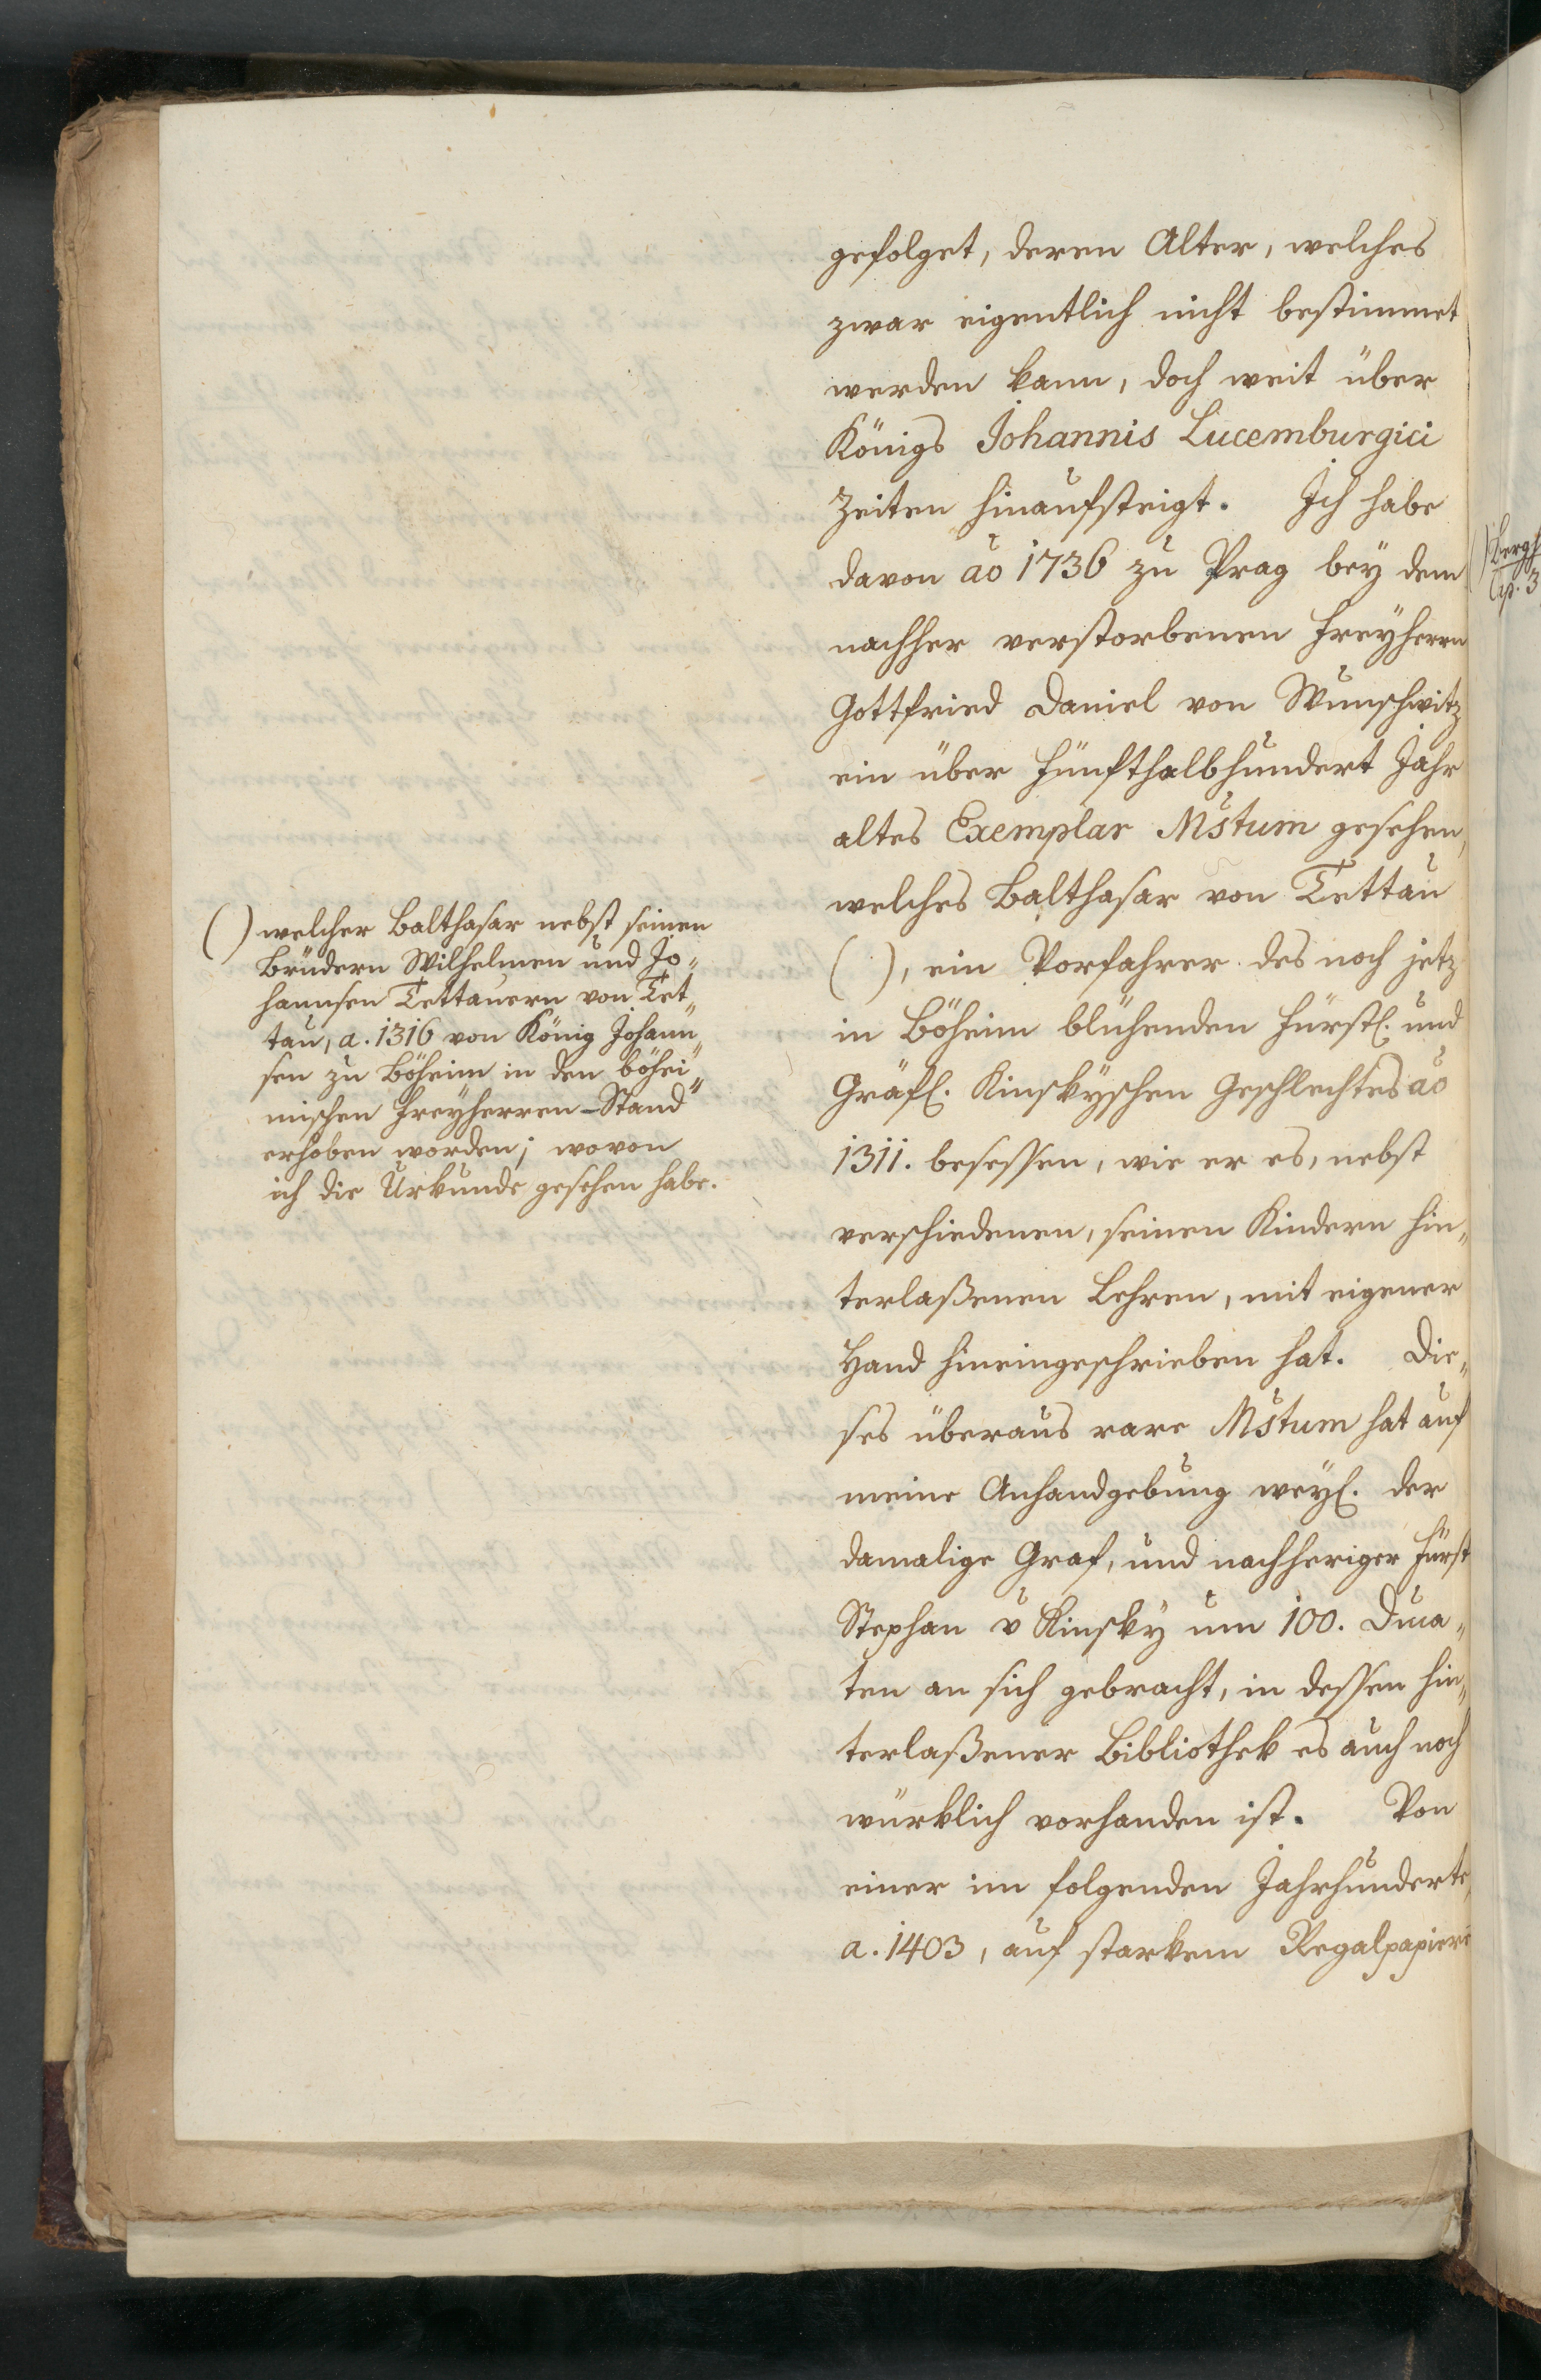 gefolget, deren Alter, welches
zwar eigentlich nicht bestimmet
werden kann, doch weit über
Königs Johannis Lucemburgici
Zeiten hinaufsteigt. Ich habe
davon ao 1736 zu Prag bey dem
nachher verstorbenen Freyherrn
Gottfried Daniel von Wunschwitz
ein über fünfthalbhundert Jahr
altes Exemplar Mstum gesehen,
welches Balthasar von Tettau
( ), ein Vorfahrer des noch jetz
in Böheim blühenden Fürstl. und
Gräfl. Kinskyschen Geschlechtes ao
1311. besessen, wie er es, nebst
verschiedenen, seinen Kindern hin„
terlaßenen Lehren, mit eigener
Hand hineingeschrieben hat. Die„
ses überaus rare Mstum hat auf
meine Anhandgebung weyl. der
damalige Graf, und nachheriger Fürst
Stephan v Kinsky um 100. Duca„
ten an sich gebracht, in dessen hin„
terlaßener Bibliothek es auch noch
würklich vorhanden ist. Von
einer im folgenden Jahrhunderte,
a. 1403, auf starkem Regalpapiere
( ) welcher Balthasar nebst seinen
Brüdern Wilhelmen und Jo„
hannsen Tettauern von Tet„
tau, a. 1316 von König Johann„
sen zu Böheim in den böhei„
mischen Freyherren-Stand
erhoben worden; wovon
ich die Urkunde gesehen habe.